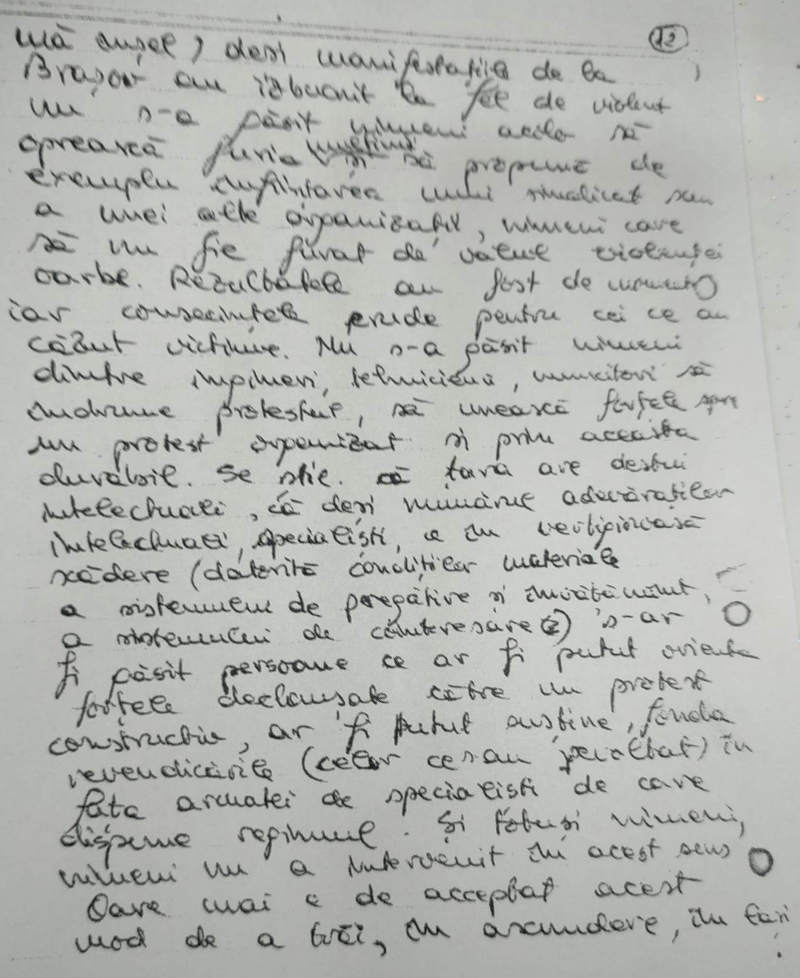 12
mă înșel, desi manifestatiile de la
Brașov au izbucnit la fel de violent
nu s-a găsit nimeni acolo să
oprească furia mulțimii si să propună de
exemplu înființarea unui sindicat sau
a unei alte organizatii, nimeni care
să nu fie furat de valul violenței
oarbe. Rezultatele au fost de moment
iar consecintele crude pentru cei ce au
căzut victime. Nu s-a găsit nimeni
dintre ingineri, tehnicieni, muncitori să
îndrume protestul, să unească forțele spre
un protest organizat si prin aceasta
durabil. Se stie că țara are destui
intelectuali, că desi numărul adevăraților
intelectuali, specialiști, e în vertiginoasă
scădere (datorită condițiilor materiale
a sistemului de pregătire si învățământ,
a sistemului de cointeresare) s-ar
fi găsit persoane ce ar fi putut orienta
forțele declanșate către un protest
constructiv, ar fi putut susține, fonda
revendicările (celor ce s-au revoltat) în
fata armatei de specialisti de care
dispune regimul. Și totusi nimeni,
nimeni nu a intervenit în acest sens
Oare mai e de acceptat acest
mod de a trăi, în ascundere, în